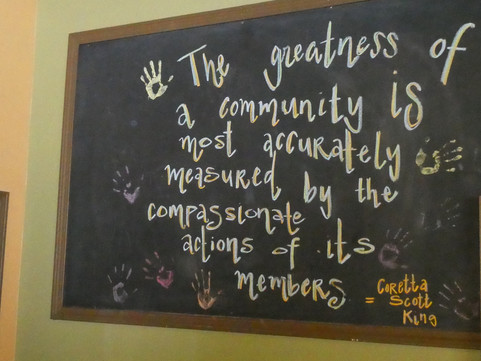 The greatness of
a community is
most accurately
measured by the
compassionate
actions of its
members
= Coretta
Scott
King